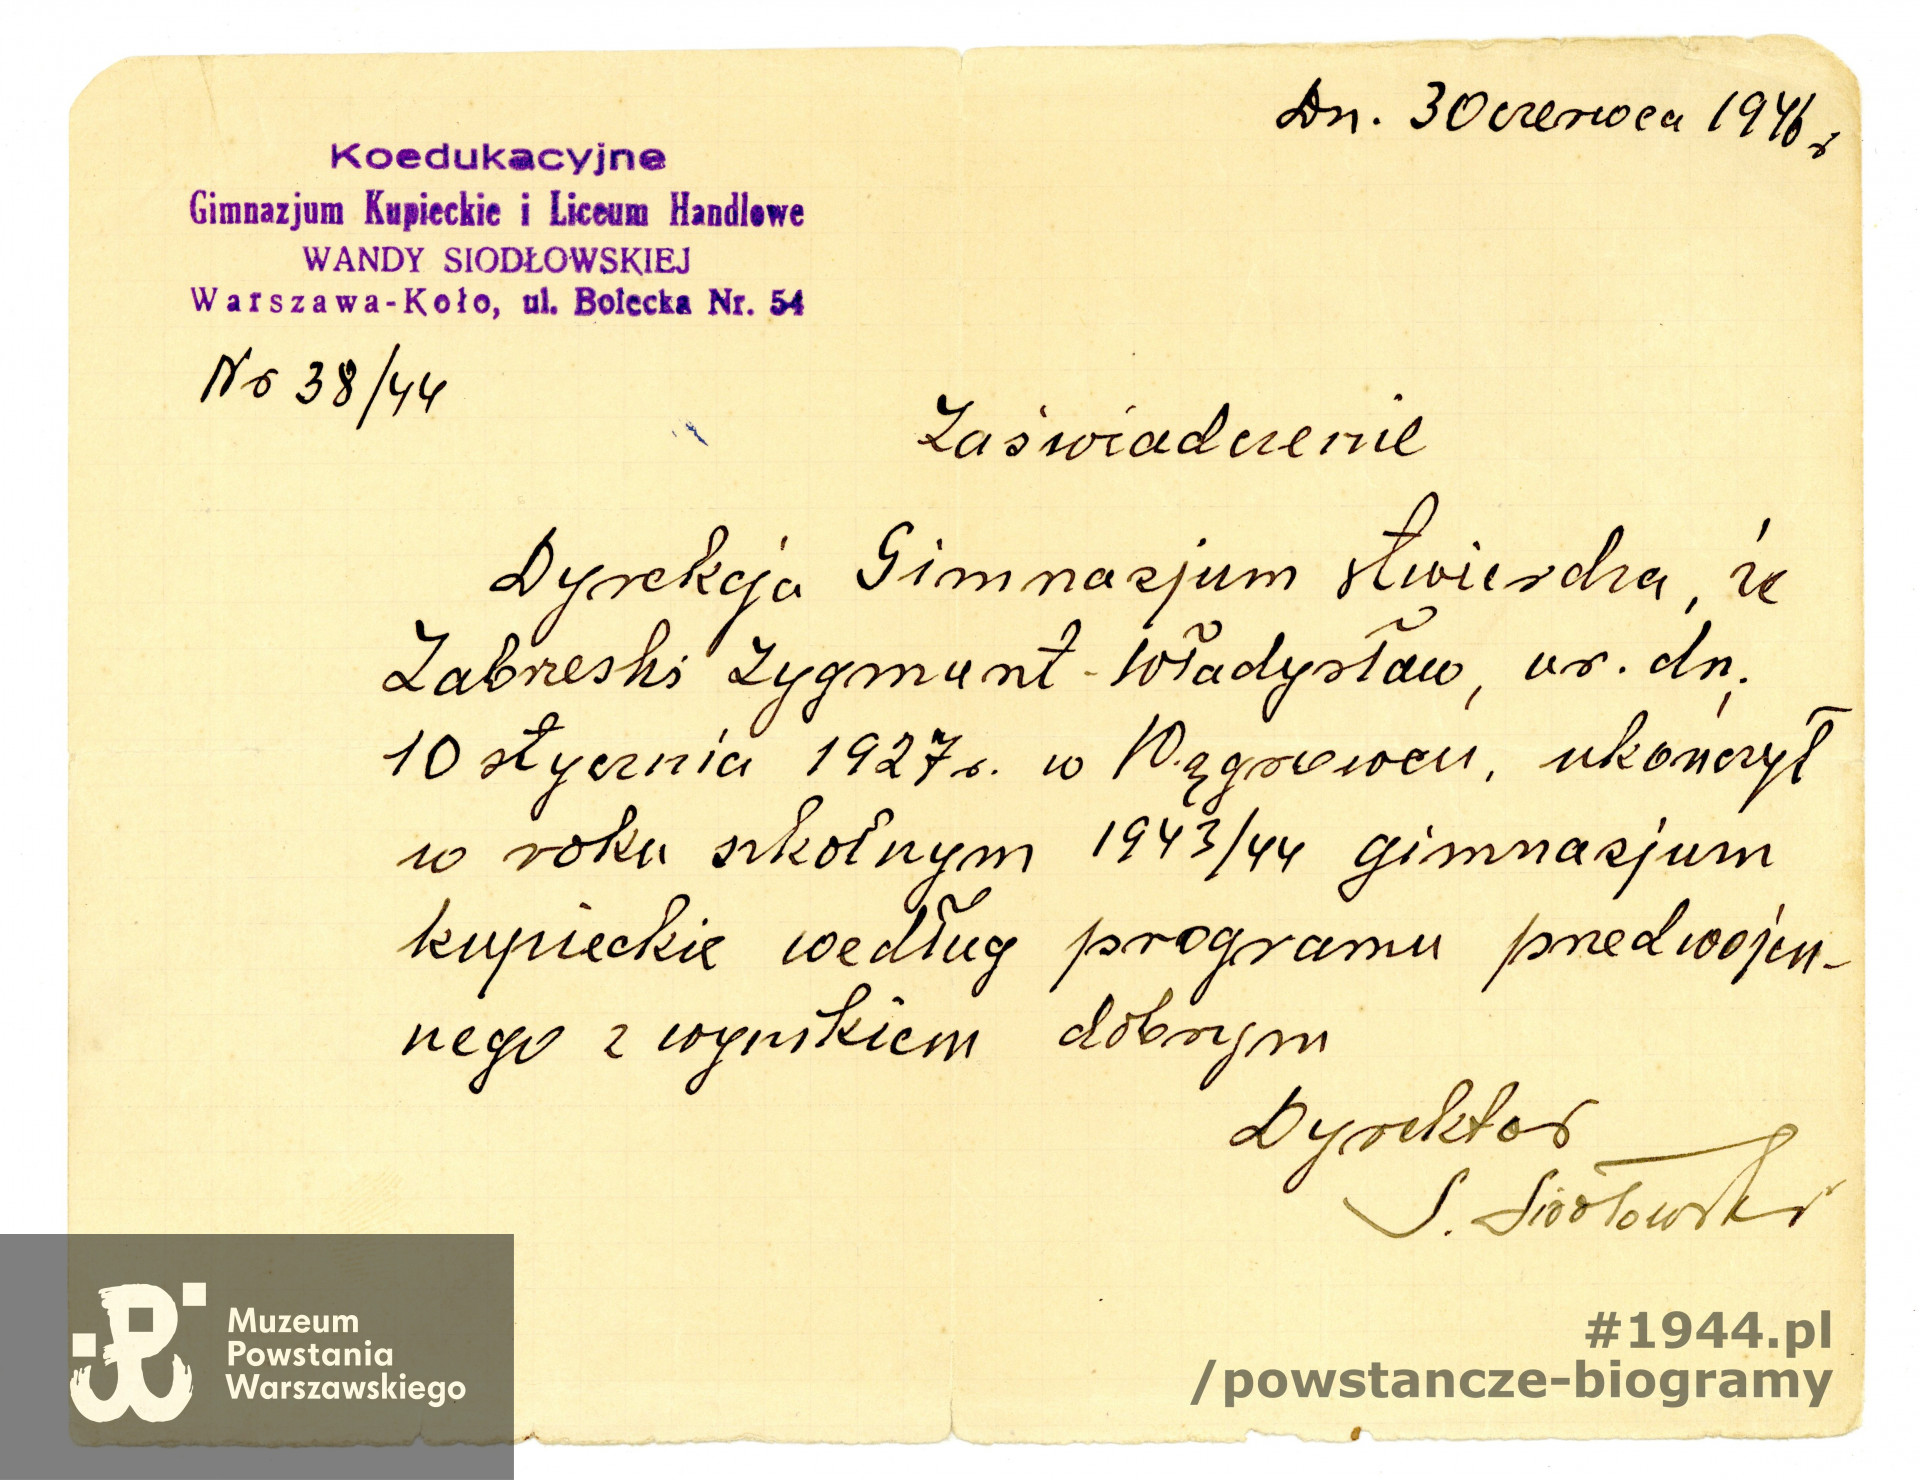 Dn. 30 czerwca 1946 r
Koedukacyjne
Gimnazjum Kupieckie i Liceum Handlowe
WANDY SIODŁOWSKIEJ
Warszawa-Koło, ul. Bolecka Nr. 54
Nr 38/44
Zaświadczenie
Dyrekcja Gimnazjum stwierdza, że
Zabrzeski Zygmunt-Władysław, ur. dn.
10 stycznia 1927 r. w Wągrowcu, ukończył
w roku szkolnym 1943/44 gimnazjum
kupieckie według programu przedwojen-
nego z wynikiem dobrym
Dyrektor
S. Siodłowski
Muzeum
Powstania
Warszawskiego
#1944.pl
/powstancze-biogramy